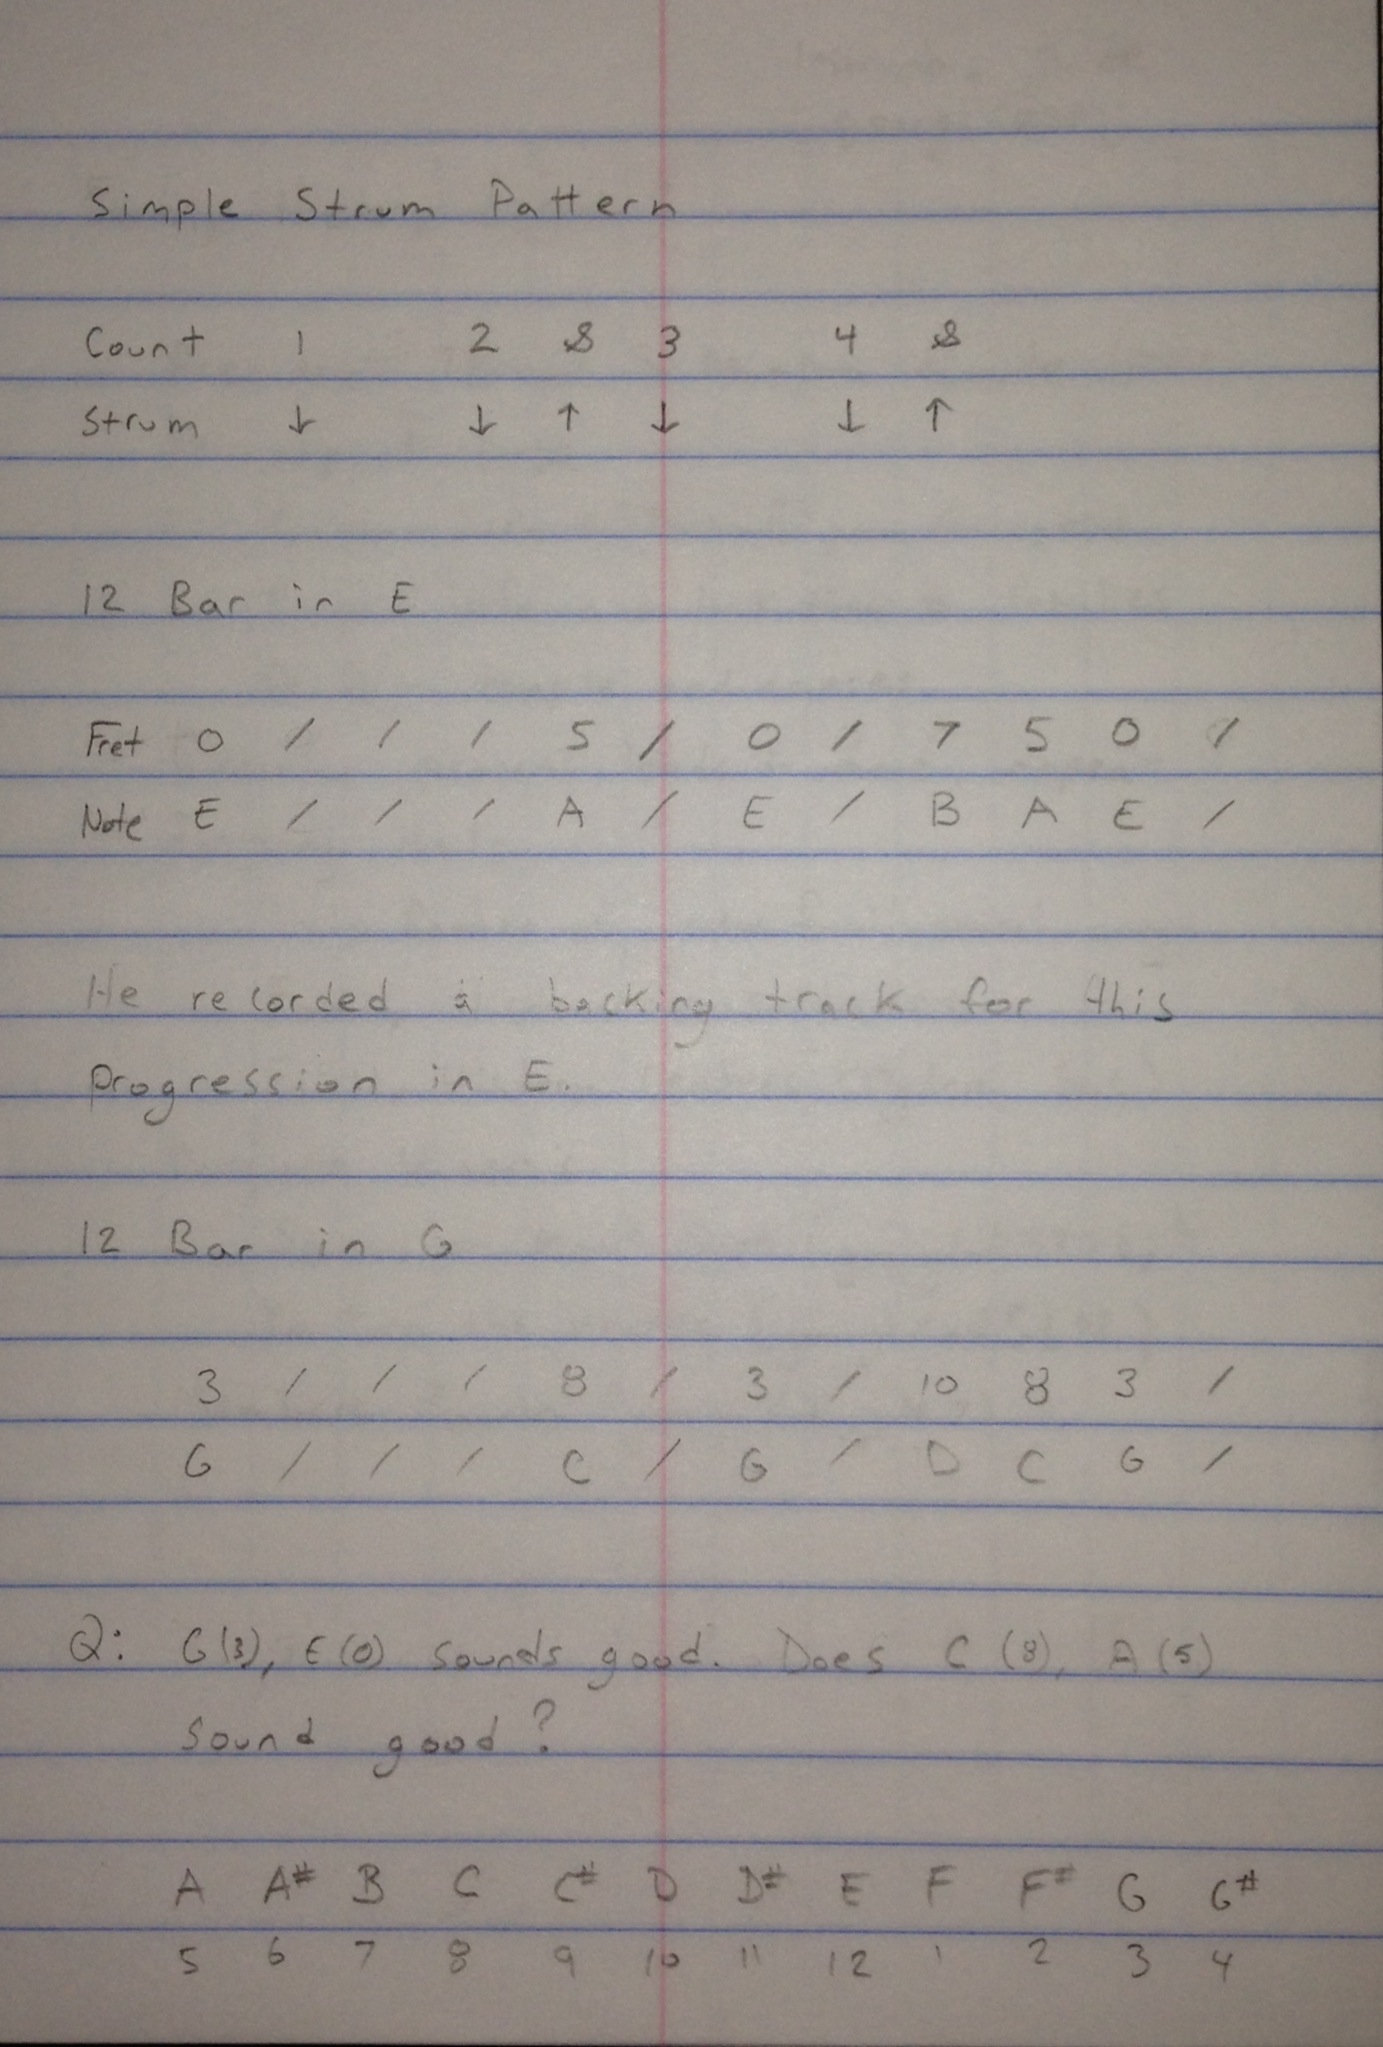 Simple Strum Pattern
Count 1 2 & 3 4 &
Strum ↓ ↓ ↑ ↓ ↓ ↑
12 Bar in E
Fret 0 / / / 5 / 0 / 7 5 0 /
Note E / / / A / E / B A E /
He recorded a backing track for this
progression in E.
12 Bar in G
3 / / / 8 / 3 / 10 8 3 /
G / / / C / G / D C G /
Q: G(3), E(0) sounds good. Does C (8), A (5)
sound good?
A A# B C C# D D# E F F# G G#
5 6 7 8 9 10 11 12 1 2 3 4